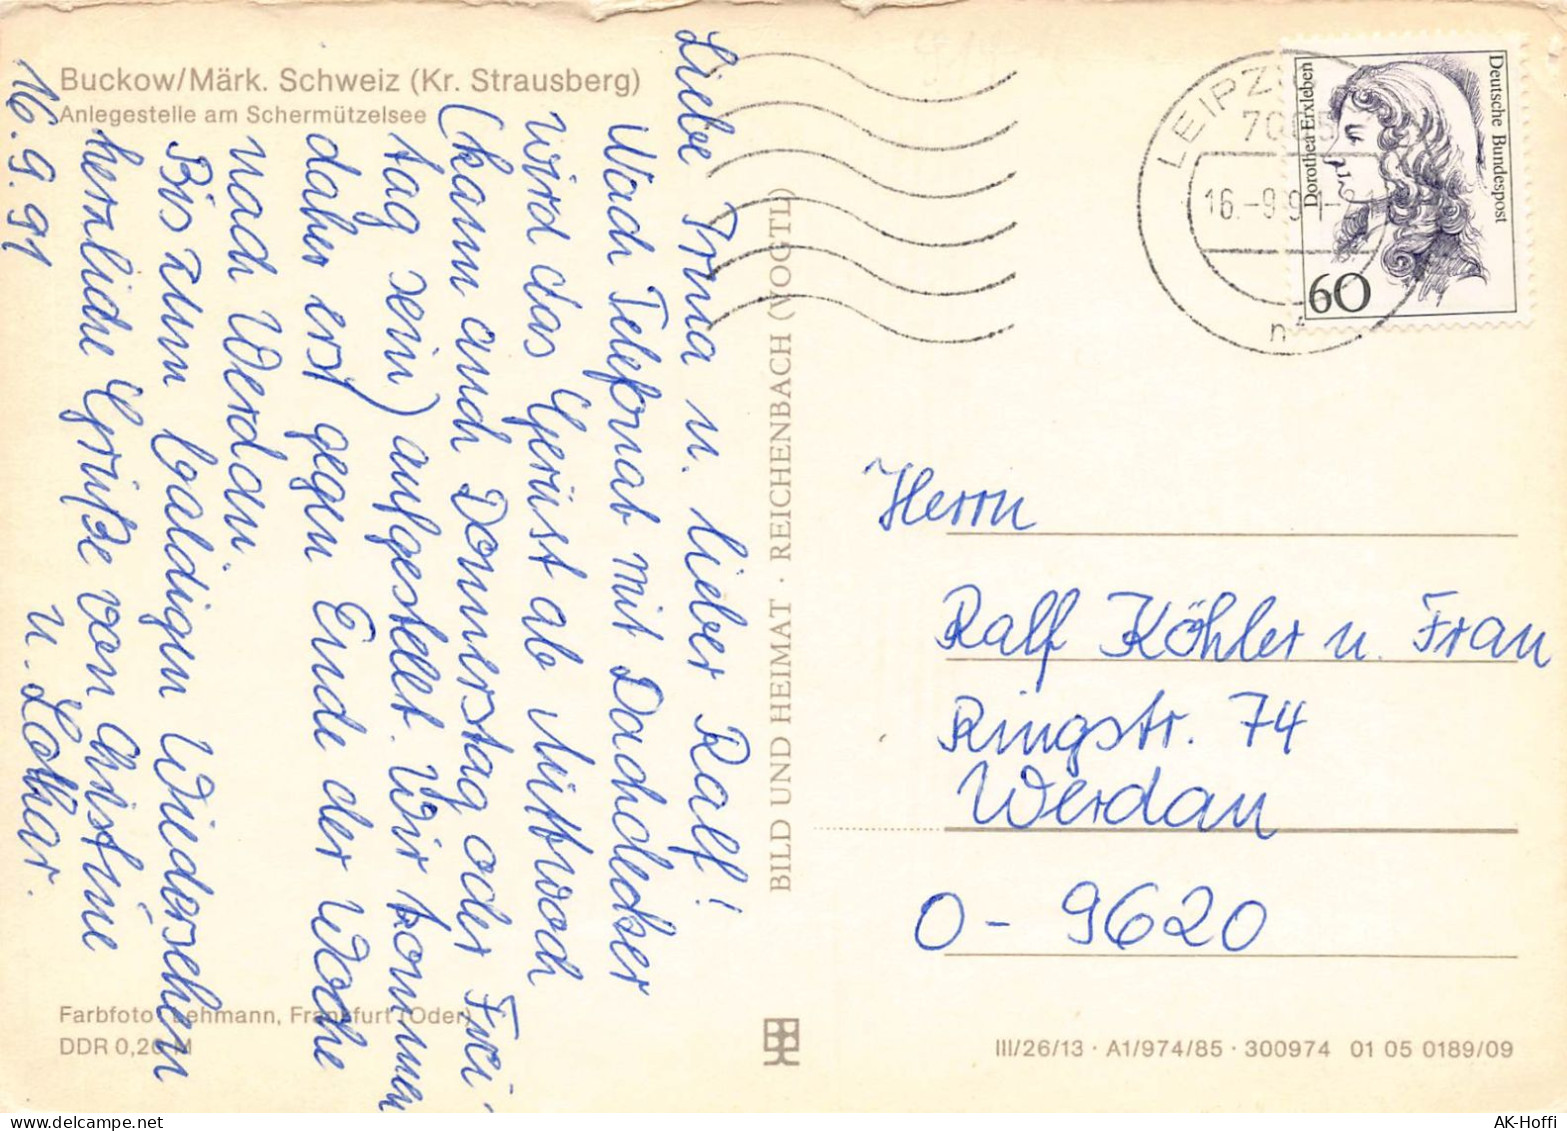 Buckow/Märk. Schweiz (Kr. Strausberg)
Anlegestelle am Schermützelsee
16.9.91
Liebe Irma u. lieber Ralf!
Nach Telefonat mit Dachdecker
wird das Gerüst ab Mittwoch
(kann auch Donnerstag oder Frei-
tag sein) aufgestellt. Wir kommen
daher erst gegen Ende der Woche
nach Werdau.
Bis zum baldigen Wiedersehen
herzliche Grüße von Christine
u. Lothar.
Farbfoto: Lehmann, Frankfurt (Oder)
DDR 0,20 M
BILD UND HEIMAT · REICHENBACH (VOGTL)
LEIPZIG
7005
16.-9.91-
Dorothea Erxleben
Deutsche Bundespost
60
Herrn
Ralf Köhler u. Frau
Ringstr. 74
Werdau
O - 9620
III/26/13 · A1/974/85 · 300974 01 05 0189/09
AK-Hoffi